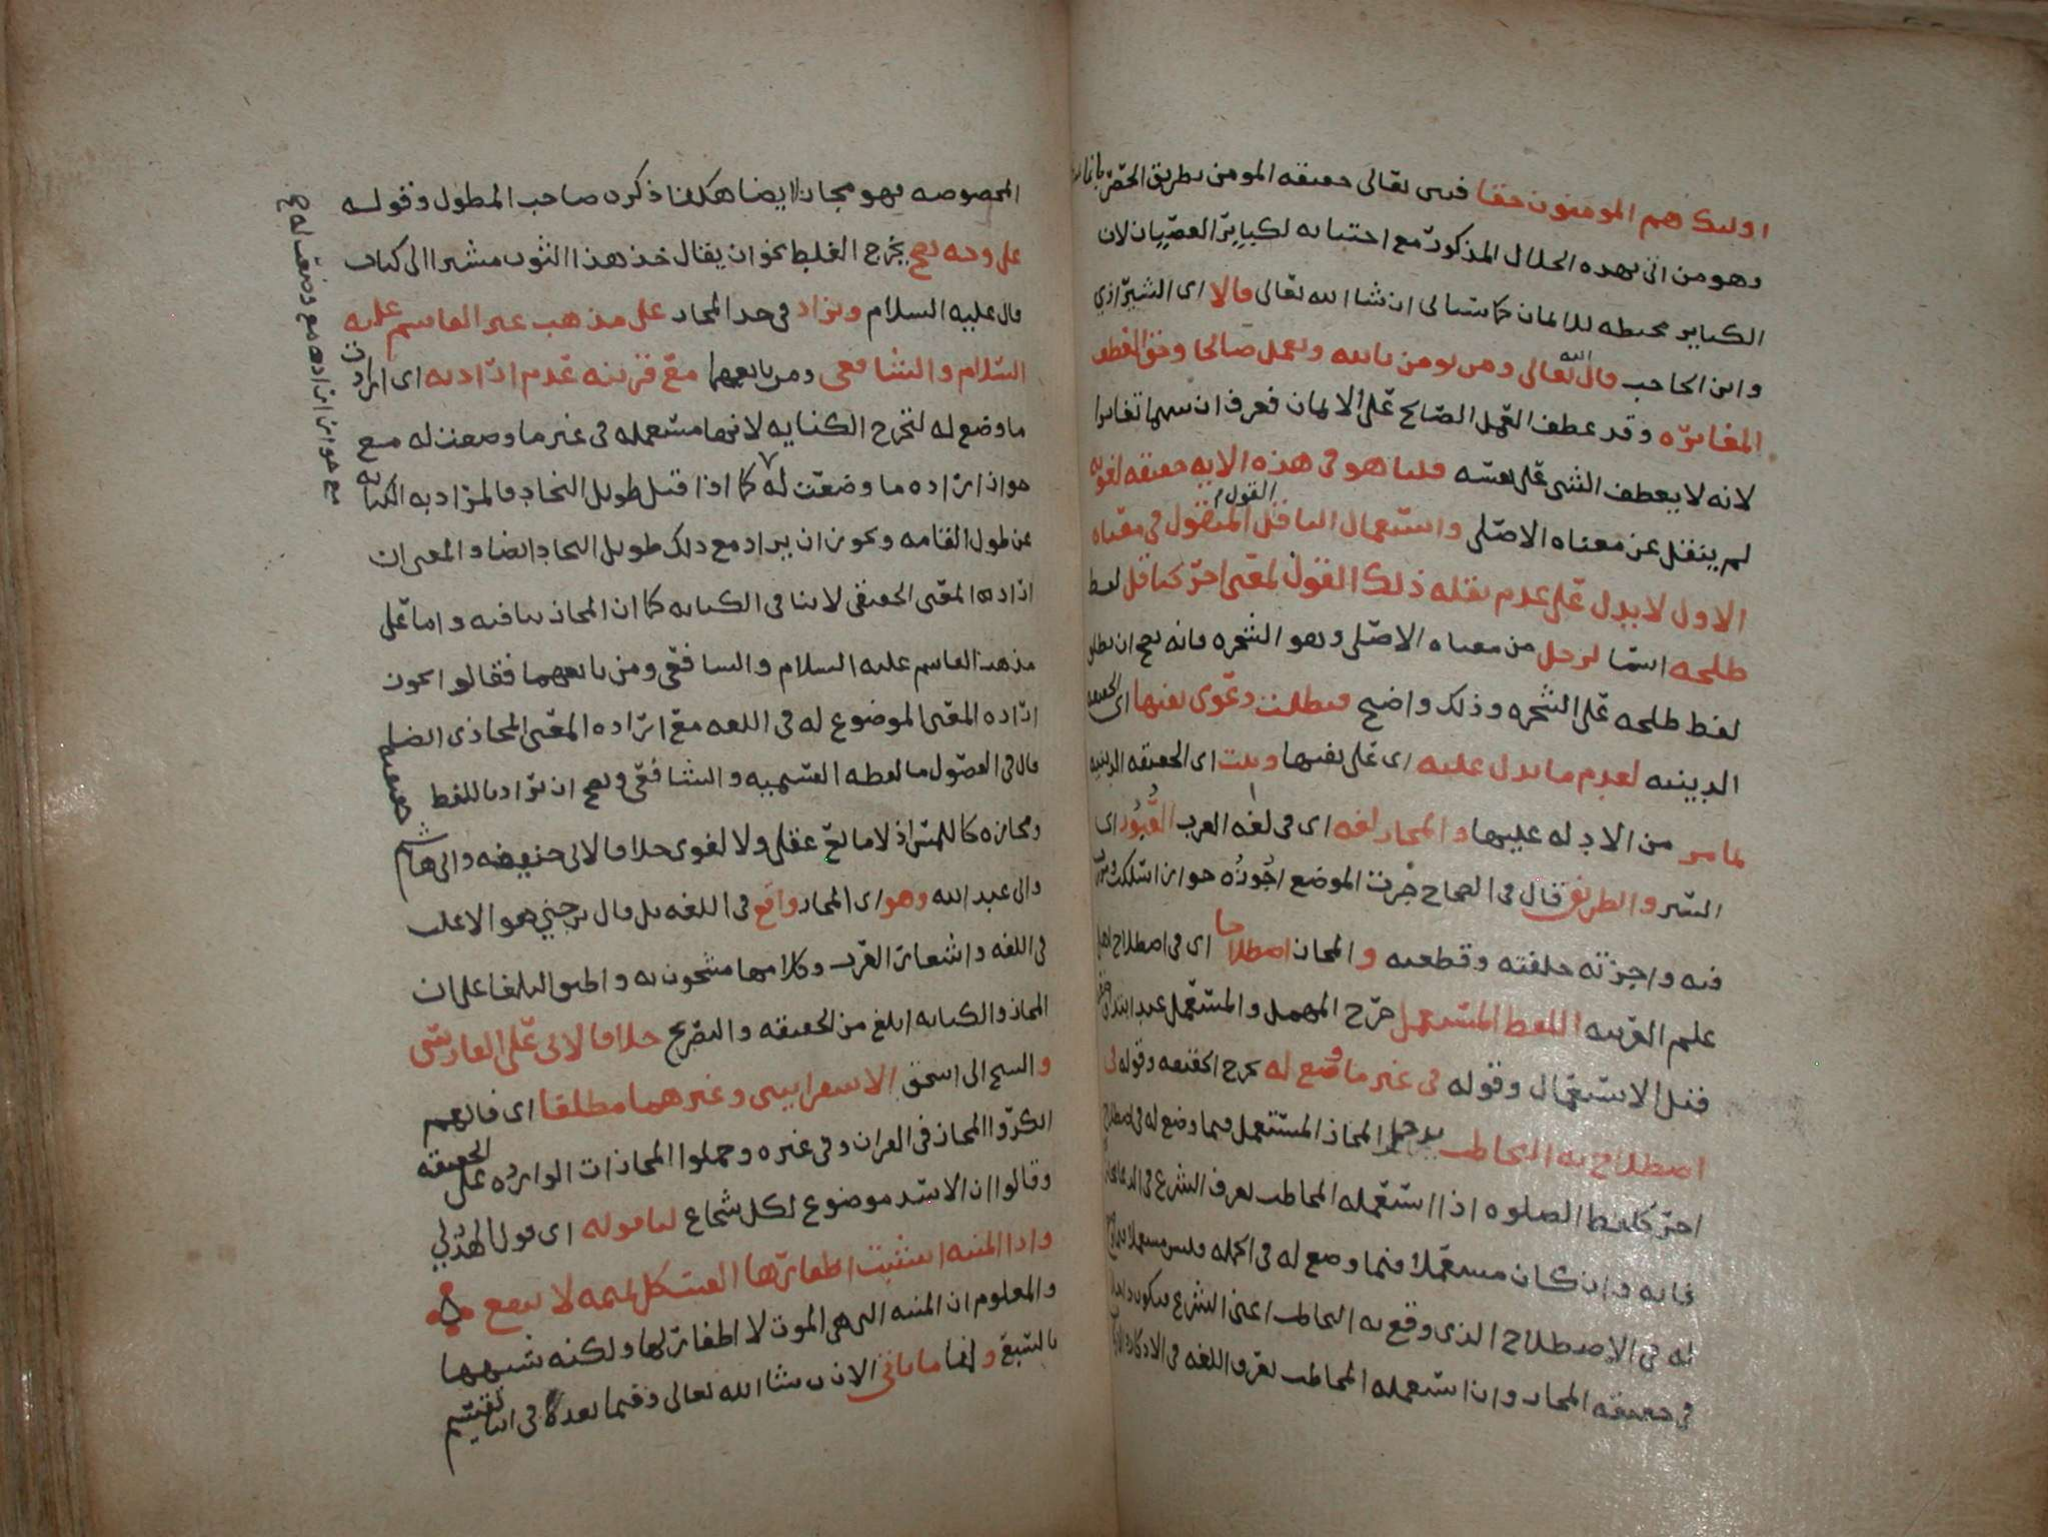 اولئك هم المومنون حقا فبين تعالى حقيقة المومن بطريق الحصر بانما
وهو من اتى بهذه الخلال المذكورة مع اجتنابه لكباير العصيان لان
الكباير محبطه للايمان كما سياتى ان شا الله تعالى قالا اى الشيرازي
وابن الحاجب قال الله تعالى ومن يومن بالله ويعمل صالحا وحق العطف
المغايره وقد عطف العمل الصالح على الايمان فعرف ان بينهما تغايرا
لانه لا يعطف الشى على نفسه قلنا هو فى هذه الايه حقيقه لغويه
لم ينقل عن معناه الاصلى واستعمال الناقل القول المنقول فى معناه
الاول لا يدل على عدم نقله ذلك القول لمعنى اخر كناقل لفظ
طلحه اسما لرجل من معناه الاصلى وهو الشجره فانه يصح ان يطلق
لفظ طلحه على الشجره وذلك واضح فبطلت دعوى نفيها اى الحقيقه
الدينيه لعدم ما يدل عليه اى على نفيها وثبت اى الحقيقه الدينيه
بما مر من الادله عليها والمجاز لغه اى فى لغه العرب العُبُور اى
السير والطريق قال فى الصحاح جُزت الموضع اجُوزُه جوازا سلكت وسرت
فيه واجزته خلفته وقطعته والمجاز اصطلاحا اى فى اصطلاح اهل
علم العربيه اللفظ المستعمل خرج المهمل والمستعمل عند ابتدا
قبل الاستعمال وقوله فى غير ما وضع له يخرج الحقيقه وقوله فى
اصطلاح به التخاطب يدخل المجاز المستعمل فيما وضع له فى اصطلاح
اخر كلفظ الصلوه اذا استعمله المخاطب بعرف الشرع فى الدعا
فانه وان كان مستعملا فيما وضع له فى الجمله فليس مستعملا فيما وضع
له فى الاصطلاح الذى وقع به التخاطب اعنى الشرع فيكون
فى حقيقه المجاز وان استعمله المخاطب بعرف اللغه فى الاركان
المخصوصه فهو مجاز ايضا هكذا ذكره صاحب المطول وقوله
على وجه يصح يخرج الغلط نحو ان يقال خذ هذا الثوب مشيرا الى كتاب
قال عليه السلام ويزاد فى حد المجاز على مذهب غير القاسم عليه
السلام والشافعى ومن تابعهما مع قرينه عدم ارادته اى ارادت
ما وضع له لتخرج الكنايه لانها مستعمله فى غير ما وضعت له مع
جواز اراده ما وضعت له كما اذا قيل طويل النجاد فالمراد به الكنايه
عن طول القامه ويجوز ان يراد مع ذلك طويل النجاد ايضا والمعنى ان
اراده المعنى الحقيقى لا ينافى الكنايه كما ان المجاز ينافيه واما على
مذهب القاسم عليه السلام والشافعى ومن تابعهما فقالوا يجوز
اراده المعنى الموضوع له فى اللغه مع اراده المعنى المجازى ايضا
قال فى الفصول ما لفظه القسميه والشافعى ويصح ان يراد باللفظ حقيقته
ومجازه كاللمس اذ لا مانع عقلى ولا لغوى خلافا لابى حنيفه وابى هاشم
وابى عبد الله وهو اى المجاز واقع فى اللغه بل قال بن جني هو الاغلب
فى اللغه واشعار العرب وكلامها مشحون به واطبق البلغا على ان
المجاز والكنايه ابلغ من الحقيقه والتصريح خلافا لابى على الفارسى
والشيخ ابى اسحق الاسفراييني وغيرهما مطلقا اى فانهم
انكروا المجاز فى القران وفى غيره وحملوا المجازات الوارده على الحقيقه
وقالوا ان الاسد موضوع لكل شجاع لنا قوله اى قول الهذلي
واذا المنيه انشبت اظفارها الفيت كل تميمه لا تنفع
والمعلوم ان المنيه التى هى الموت لا اظفار لها ولكنه شبهها
بالسبع ولما ياتى الان ان شا الله تعالى وفيما بعده فى التقسيم
مع جواز اراده مع وضعت له صح